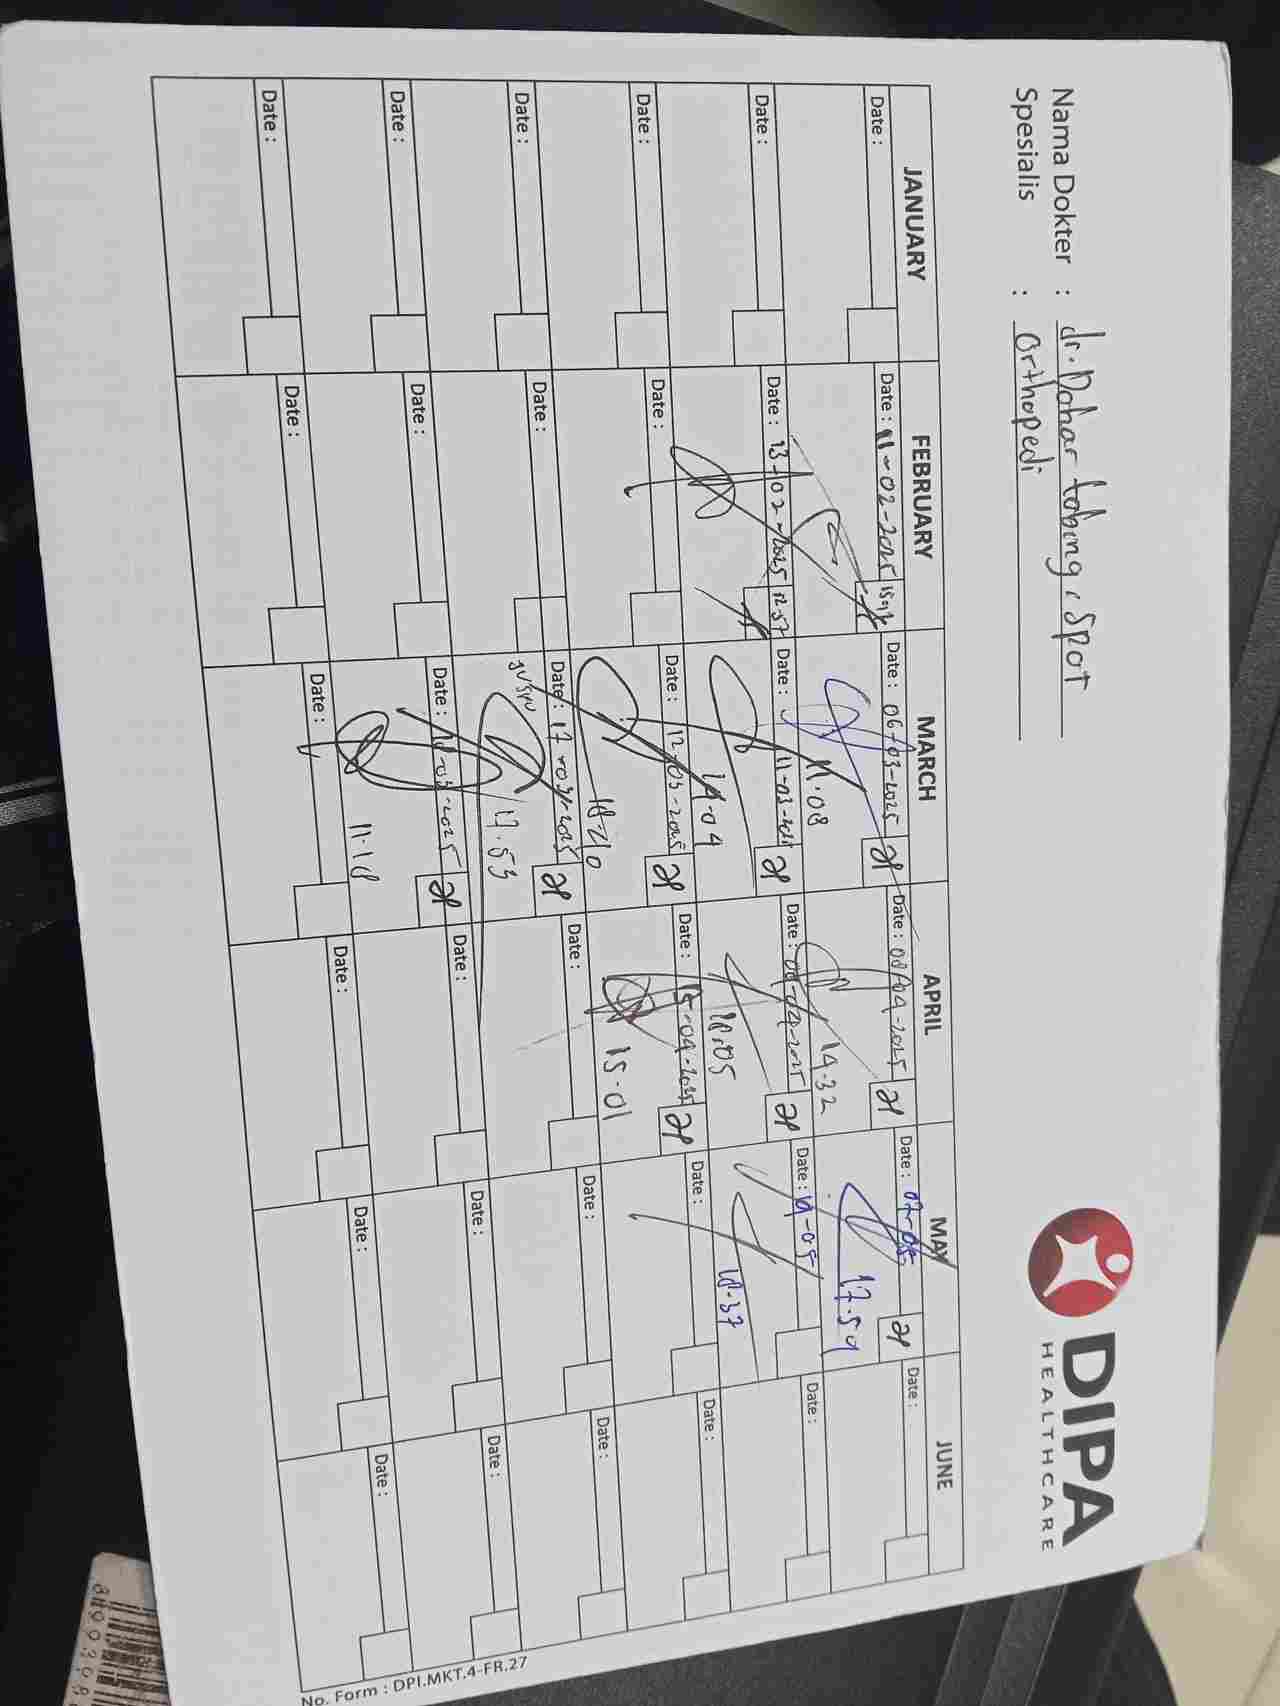 Nama Dokter : dr. Dohar tobing, SpOT
Spesialis : Orthopedi
DIPA
HEALTHCARE
JANUARY FEBRUARY MARCH APRIL MAY JUNE
Date : Date : 11-02-2025 Date : 06-03-2025 Date : 08-04-2025 Date : 07-05 Date :
11.08 14.32 17.59
Date : Date : 13-02-2025 12.57 Date : 11-03-2025 Date : 08-04-2025 Date : 19-05 Date :
18.05 18.37
Date : Date : Date : 12-03-2025 Date : 15-04-2025 Date : Date :
15.01
Date : Date : Date : 17-03-2025 Date : Date : Date :
17.53
Date : Date : Date : 18-03-2025 Date : Date : Date :
11.18
Date : Date : Date : Date : Date : Date :
No. Form : DPI.MKT.4-FR.27